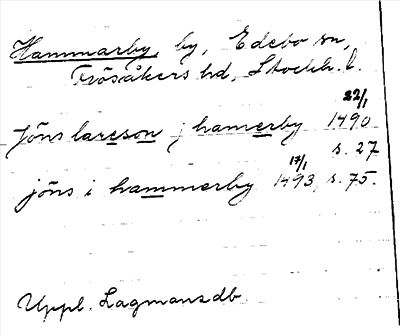 Hammarby, by, Edebo sn,
Frösåkers hd, Stockh. l.
22/1
Jöns larsson j hamerby 1490
s. 27
17/1
jöns i hammerby 1493, s. 75.
Uppl. Lagmansdb.